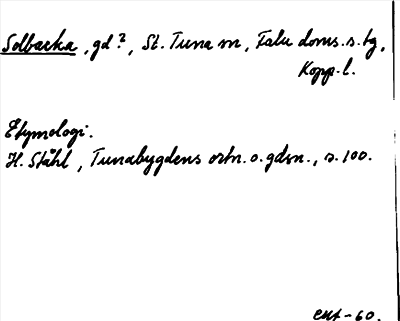 Solbacka, gd?, St. Tuna sn, Falu doms. s. tg,
Kopp. l.
Etymologi.
H. Ståhl, Tunabygdens ortn. o. gdsn., s. 100.
-60.